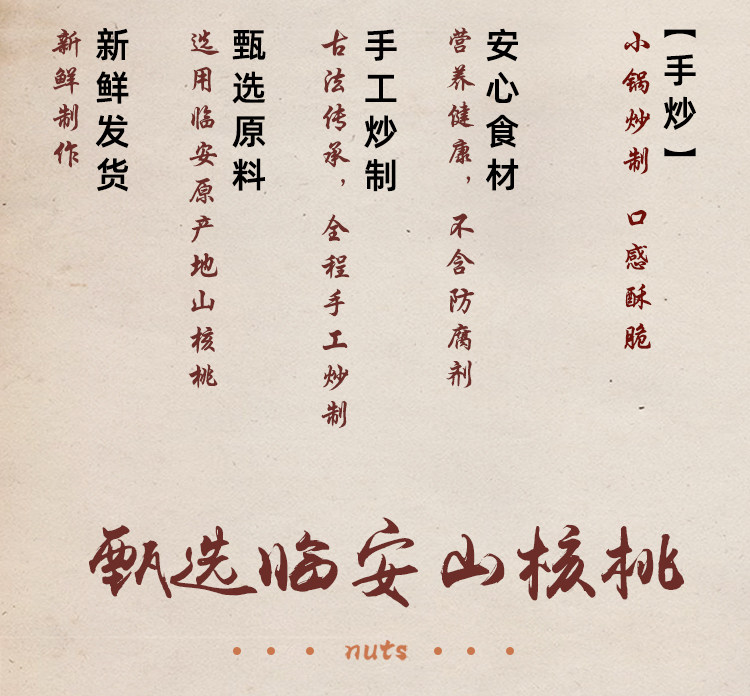 【手炒】
小锅炒制 口感酥脆
安心食材
营养健康，不含防腐剂
手工炒制
古法传承，全程手工炒制
甄选原料
选用临安原产地山核桃
新鲜发货
新鲜制作
甄选临安山核桃
nuts